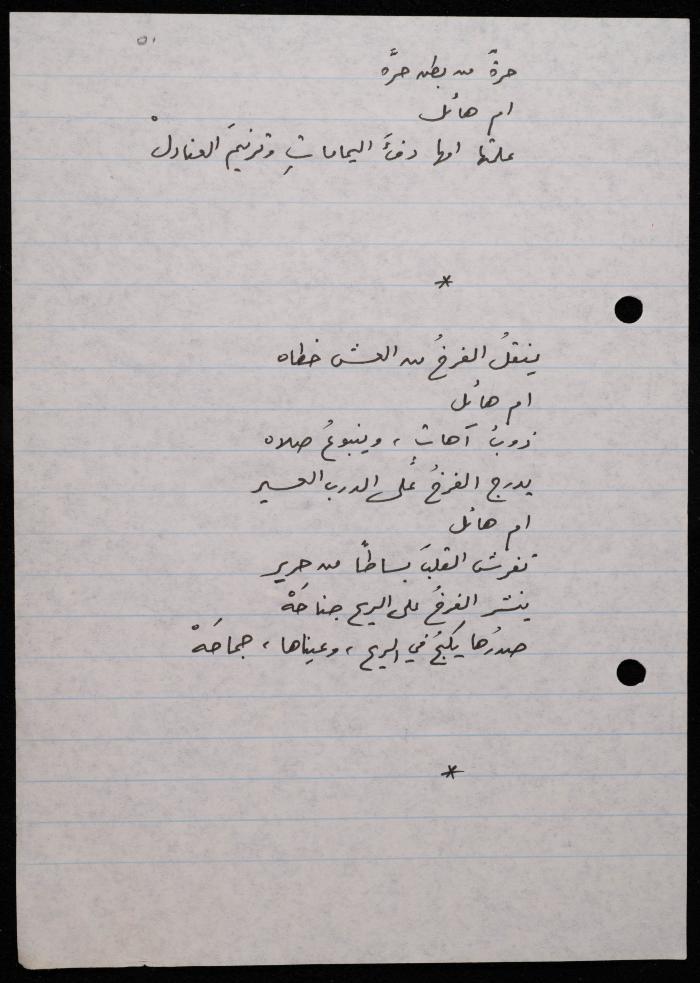 ٥١
حرةٌ من بطن حرَّه
ام هائل
علمتها امها دفءَ اليماماتِ وترنيمَ العنادلْ
*
ينقلُ الفرخُ من العش خطاه
ام هائل
ذوبُ آهاتٍ ، وينبوعُ صلاه
يدرج الفرخُ على الدرب العسير
ام هائل
تفرش القلبَ بساطًا من حرير
ينشر الفرخُ على الريح جناحَهْ
صدرُها يكبحُ في الريح ، وعيناها ، جماحَهْ
*